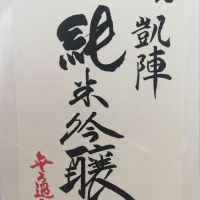 凱陣
純米吟醸